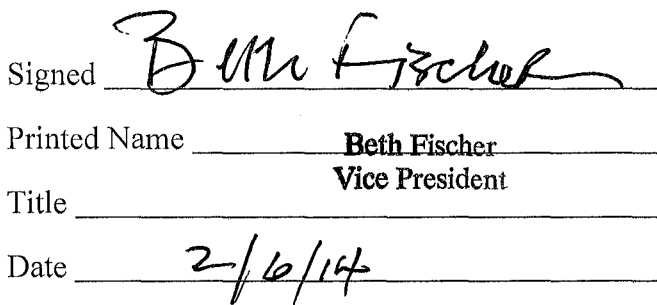 Signed Beth Fischer
Printed Name Beth Fischer
Vice President
Title
Date 2/6/14